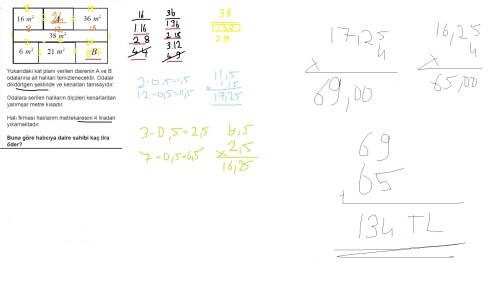 16 m²
A
36 m²
38 m²
6 m²
21 m²
B
Yukarıdaki kat planı verilen dairenin A ve B
odalarına ait halıları temizletilecektir. Odalar
dikdörtgen şeklinde ve kenarları tamsayıdır.
Odalara serilen halıların ölçüleri kenarlardan
yarımşar metre kısadır.
Halı firması halıların metrekaresini 4 liradan
yıkamaktadır.
Buna göre halıcıya daire sahibi kaç lira
öder?
16
1.16
2.8
4.4
36
1.36
2.18
3.12
38
1.38
2.19
2-0,5=1,5
12-0,5=
11,5
1,5
17,25
3-0,5=2,5
7-0,5=6,5
6,5
x 2,5
16,25
17,25
x 4
69,00
16,25
x 4
65,00
69
+ 65
134 TL